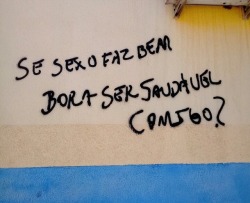 SE SEXO FAZ BEM
BORA SER SAUDÁVEL
COMIGO?